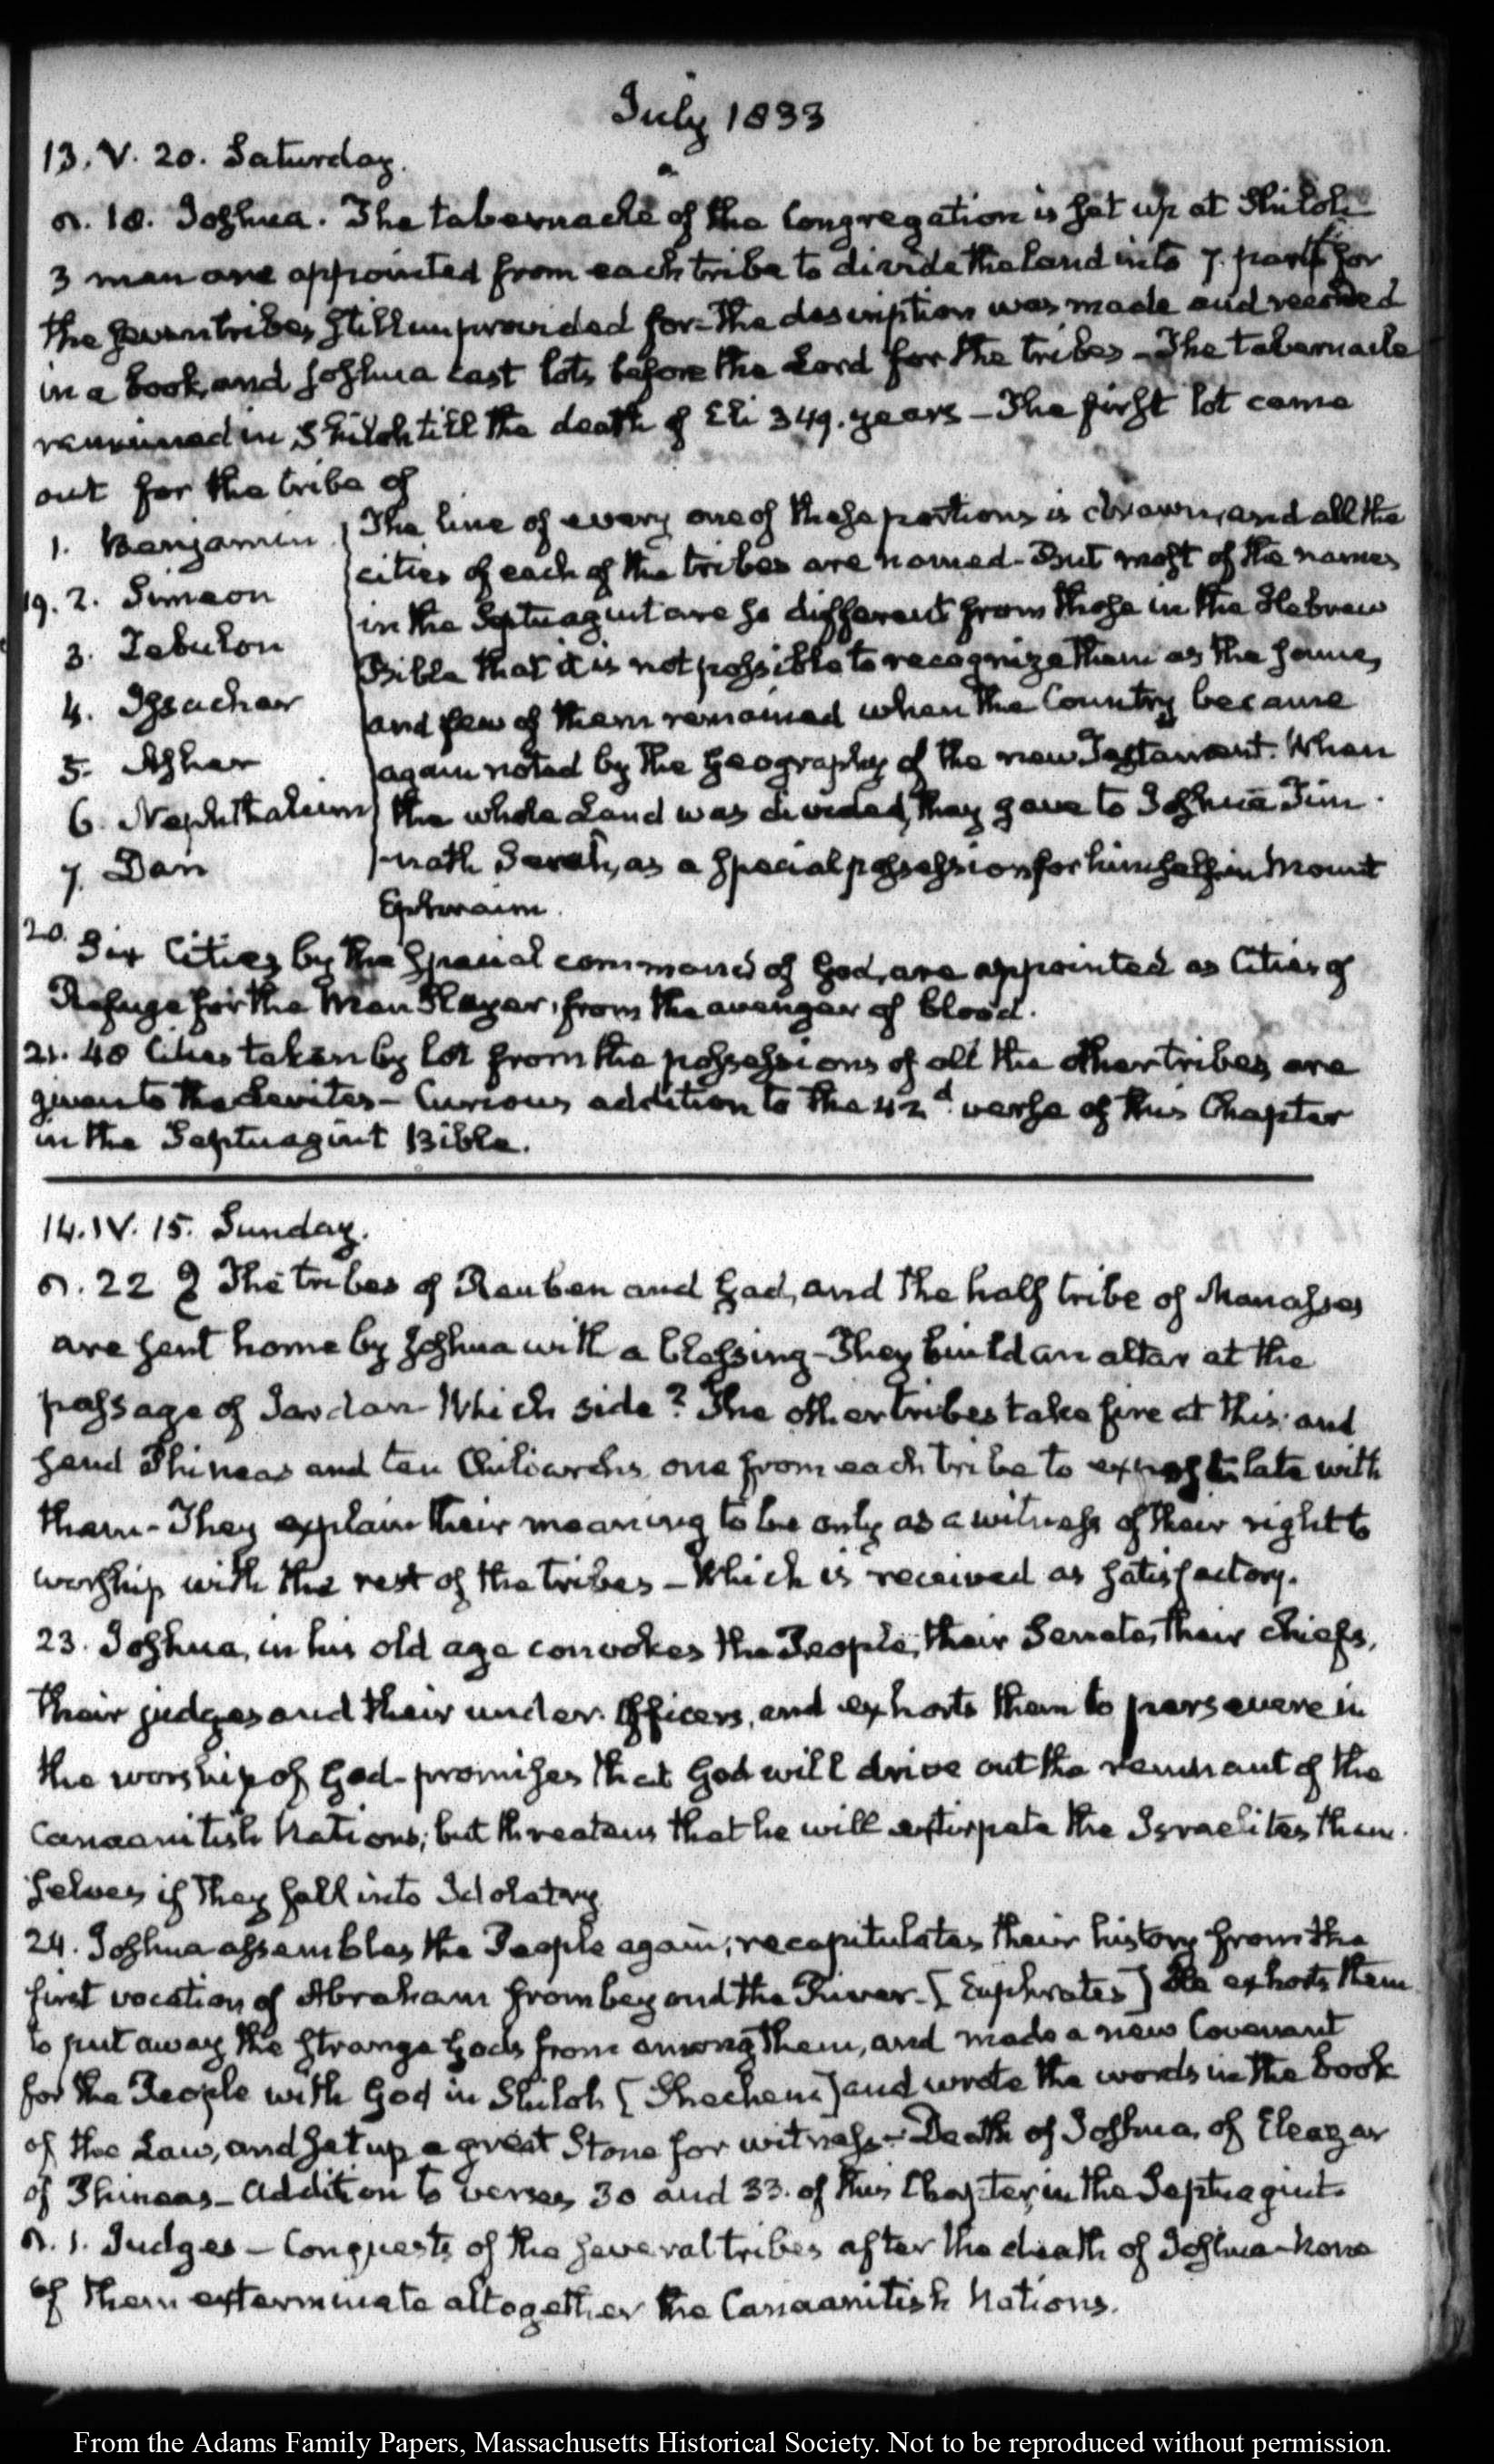 July 1833
13. V. 20. Saturday.
18. Joshua. The tabernacle of the Congregation is set up at Shiloh
3 men are appointed from each tribe to divide the land into 7. parts for
the seven tribes still unprovided for. The description was made and recorded
in a book, and Joshua cast lots before the Lord for the tribes – The tabernacle
remained in Shiloh till the death of Eli 349. years – The first lot came
out for the tribe of
1. Benjamin
19. 2. Simeon
3. Zebulon
4. Issachar
5. Asher
6. Nephthaleim
7. Dan
The line of every one of these portions is drawn, and all the
cities of each of the tribes are named – But most of the names
in the Septuagint are so different from those in the Hebrew
Bible that it is not possible to recognize them as the same,
and few of them remained when the Country became
again noted by the Geography of the new Testament. When
the whole Land was divided, they gave to Joshua Tim-
nath Serah, as a special possession for himself in Mount
Ephraim.
20. Six Cities by the special command of God, are appointed as Cities of
Refuge for the Man Slayer, from the avenger of blood.
21. 48 Cities taken by lot from the possessions of all the other tribes are
given to the Levites – Curious addition to the 42d. verse of this Chapter
in the Septuagint Bible.
14. IV. 15. Sunday.
22 The tribes of Reuben and Gad, and the half tribe of Manasses
are sent home by Joshua with a blessing – They build an altar at the
passage of Jordan – Which side? The other tribes take fire at this and
send Phineas and ten Chiliarchs one from each tribe to expostulate with
them – They explain their meaning to be only as a witness of their right to
worship with the rest of the tribes – Which is received as satisfactory.
23. Joshua, in his old age convokes the People, their Senate, their chiefs,
their judges and their under officers, and exhorts them to persevere in
the worship of God – promises that God will drive out the remnant of the
Canaanitish Nations; but threatens that he will extirpate the Israelites them-
selves if they fall into Idolatry
24. Joshua assembles the People again; recapitulates their history from the
first vocation of Abraham from beyond the River – [Euphrates] He exhorts them
to put away the strange Gods from among them, and made a new Covenant
for the People with God in Shiloh [Shechem] and wrote the words in the book
of the Law, and set up a great Stone for witness – Death of Joshua, of Eleazar
of Phineas – Addition to verses 30 and 33. of this Chapter, in the Septuagint
1. Judges – Conquests of the several tribes after the death of Joshua – None
of them exterminate altogether the Canaanitish Nations.
From the Adams Family Papers, Massachusetts Historical Society. Not to be reproduced without permission.